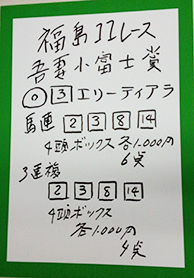 福島11レース
吾妻小富士賞
◎ 3 エリーティアラ
馬連 2 3 8 14
4頭ボックス各1.000円
6点
3連複
2 3 8 14
4頭ボックス
各1.000円
4点